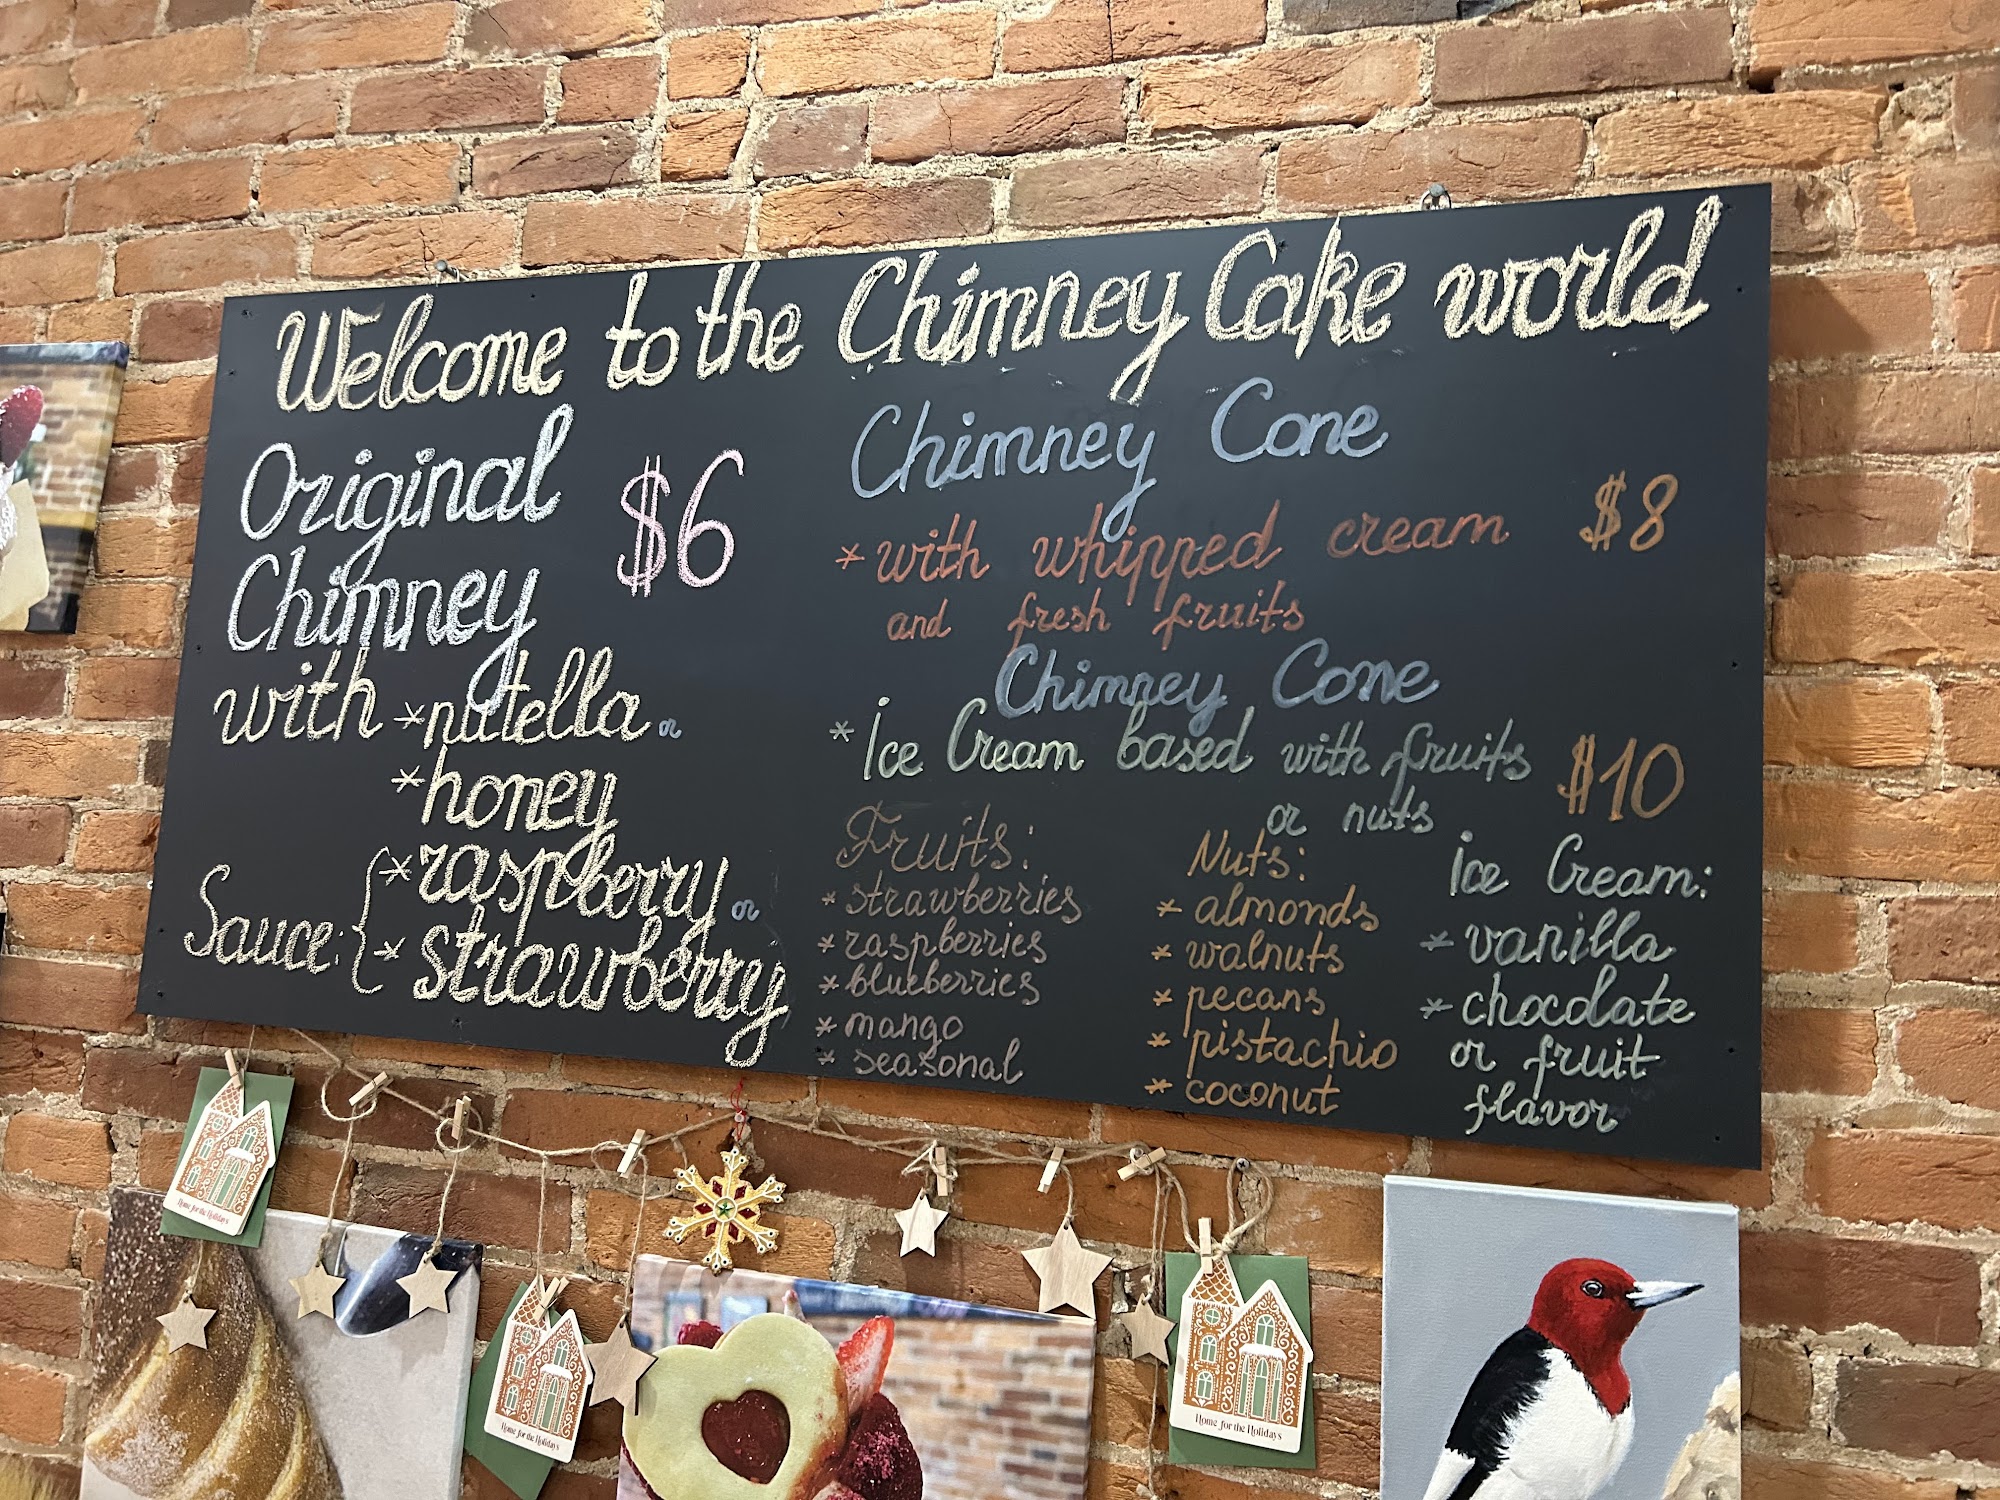 Welcome to the Chimney Cake world
Original
Chimney
$6
with *nutella or
*honey
Sauce: { *raspberry or
* strawberry
Chimney Cone
* with whipped cream $8
and fresh fruits
Chimney Cone
* Ice Cream based with fruits $10
or nuts
Fruits:
* strawberries
* raspberries
* blueberries
* mango
* seasonal
Nuts:
* almonds
* walnuts
* pecans
* pistachio
* coconut
Ice Cream:
* vanilla
* chocolate
or fruit
flavor
Home for the Holidays
Home for the Holidays
Home for the Holidays